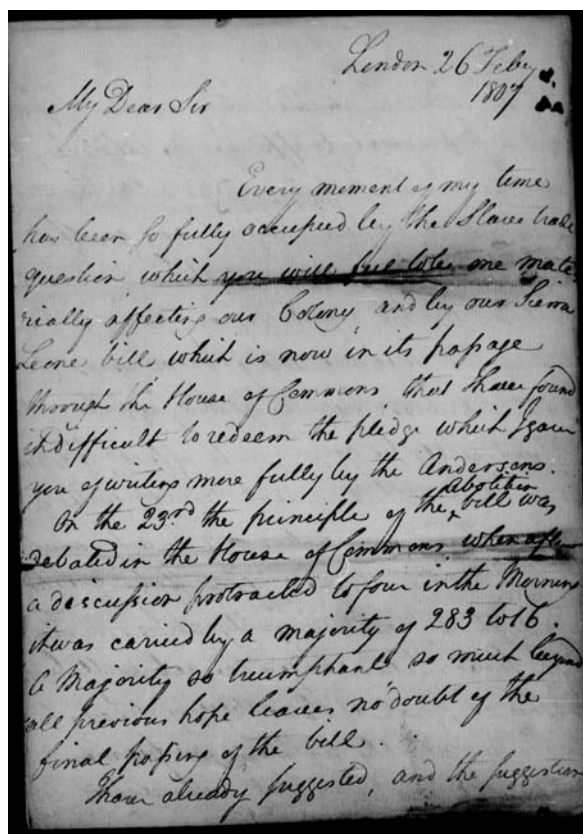 London 26 Feby
1807
My Dear Sir
Every moment of my time
has been so fully occupied by the Slave trade
question which you will see to be one mate
rially affecting our Colony and by our Sierra
Leone bill which is now in its passage
through the House of Commons that I have found
it difficult to redeem the pledge which I gave
you of writing more fully by the Andersons.
On the 23rd the principle of the abolition bill was
debated in the House of Commons when after
a discussion protracted to four in the Morning
it was carried by a majority of 283 to 16.
A Majority so triumphant, so much beyond
all previous hope leaves no doubt of the
final passing of the bill.
I have already suggested, and the suggestion